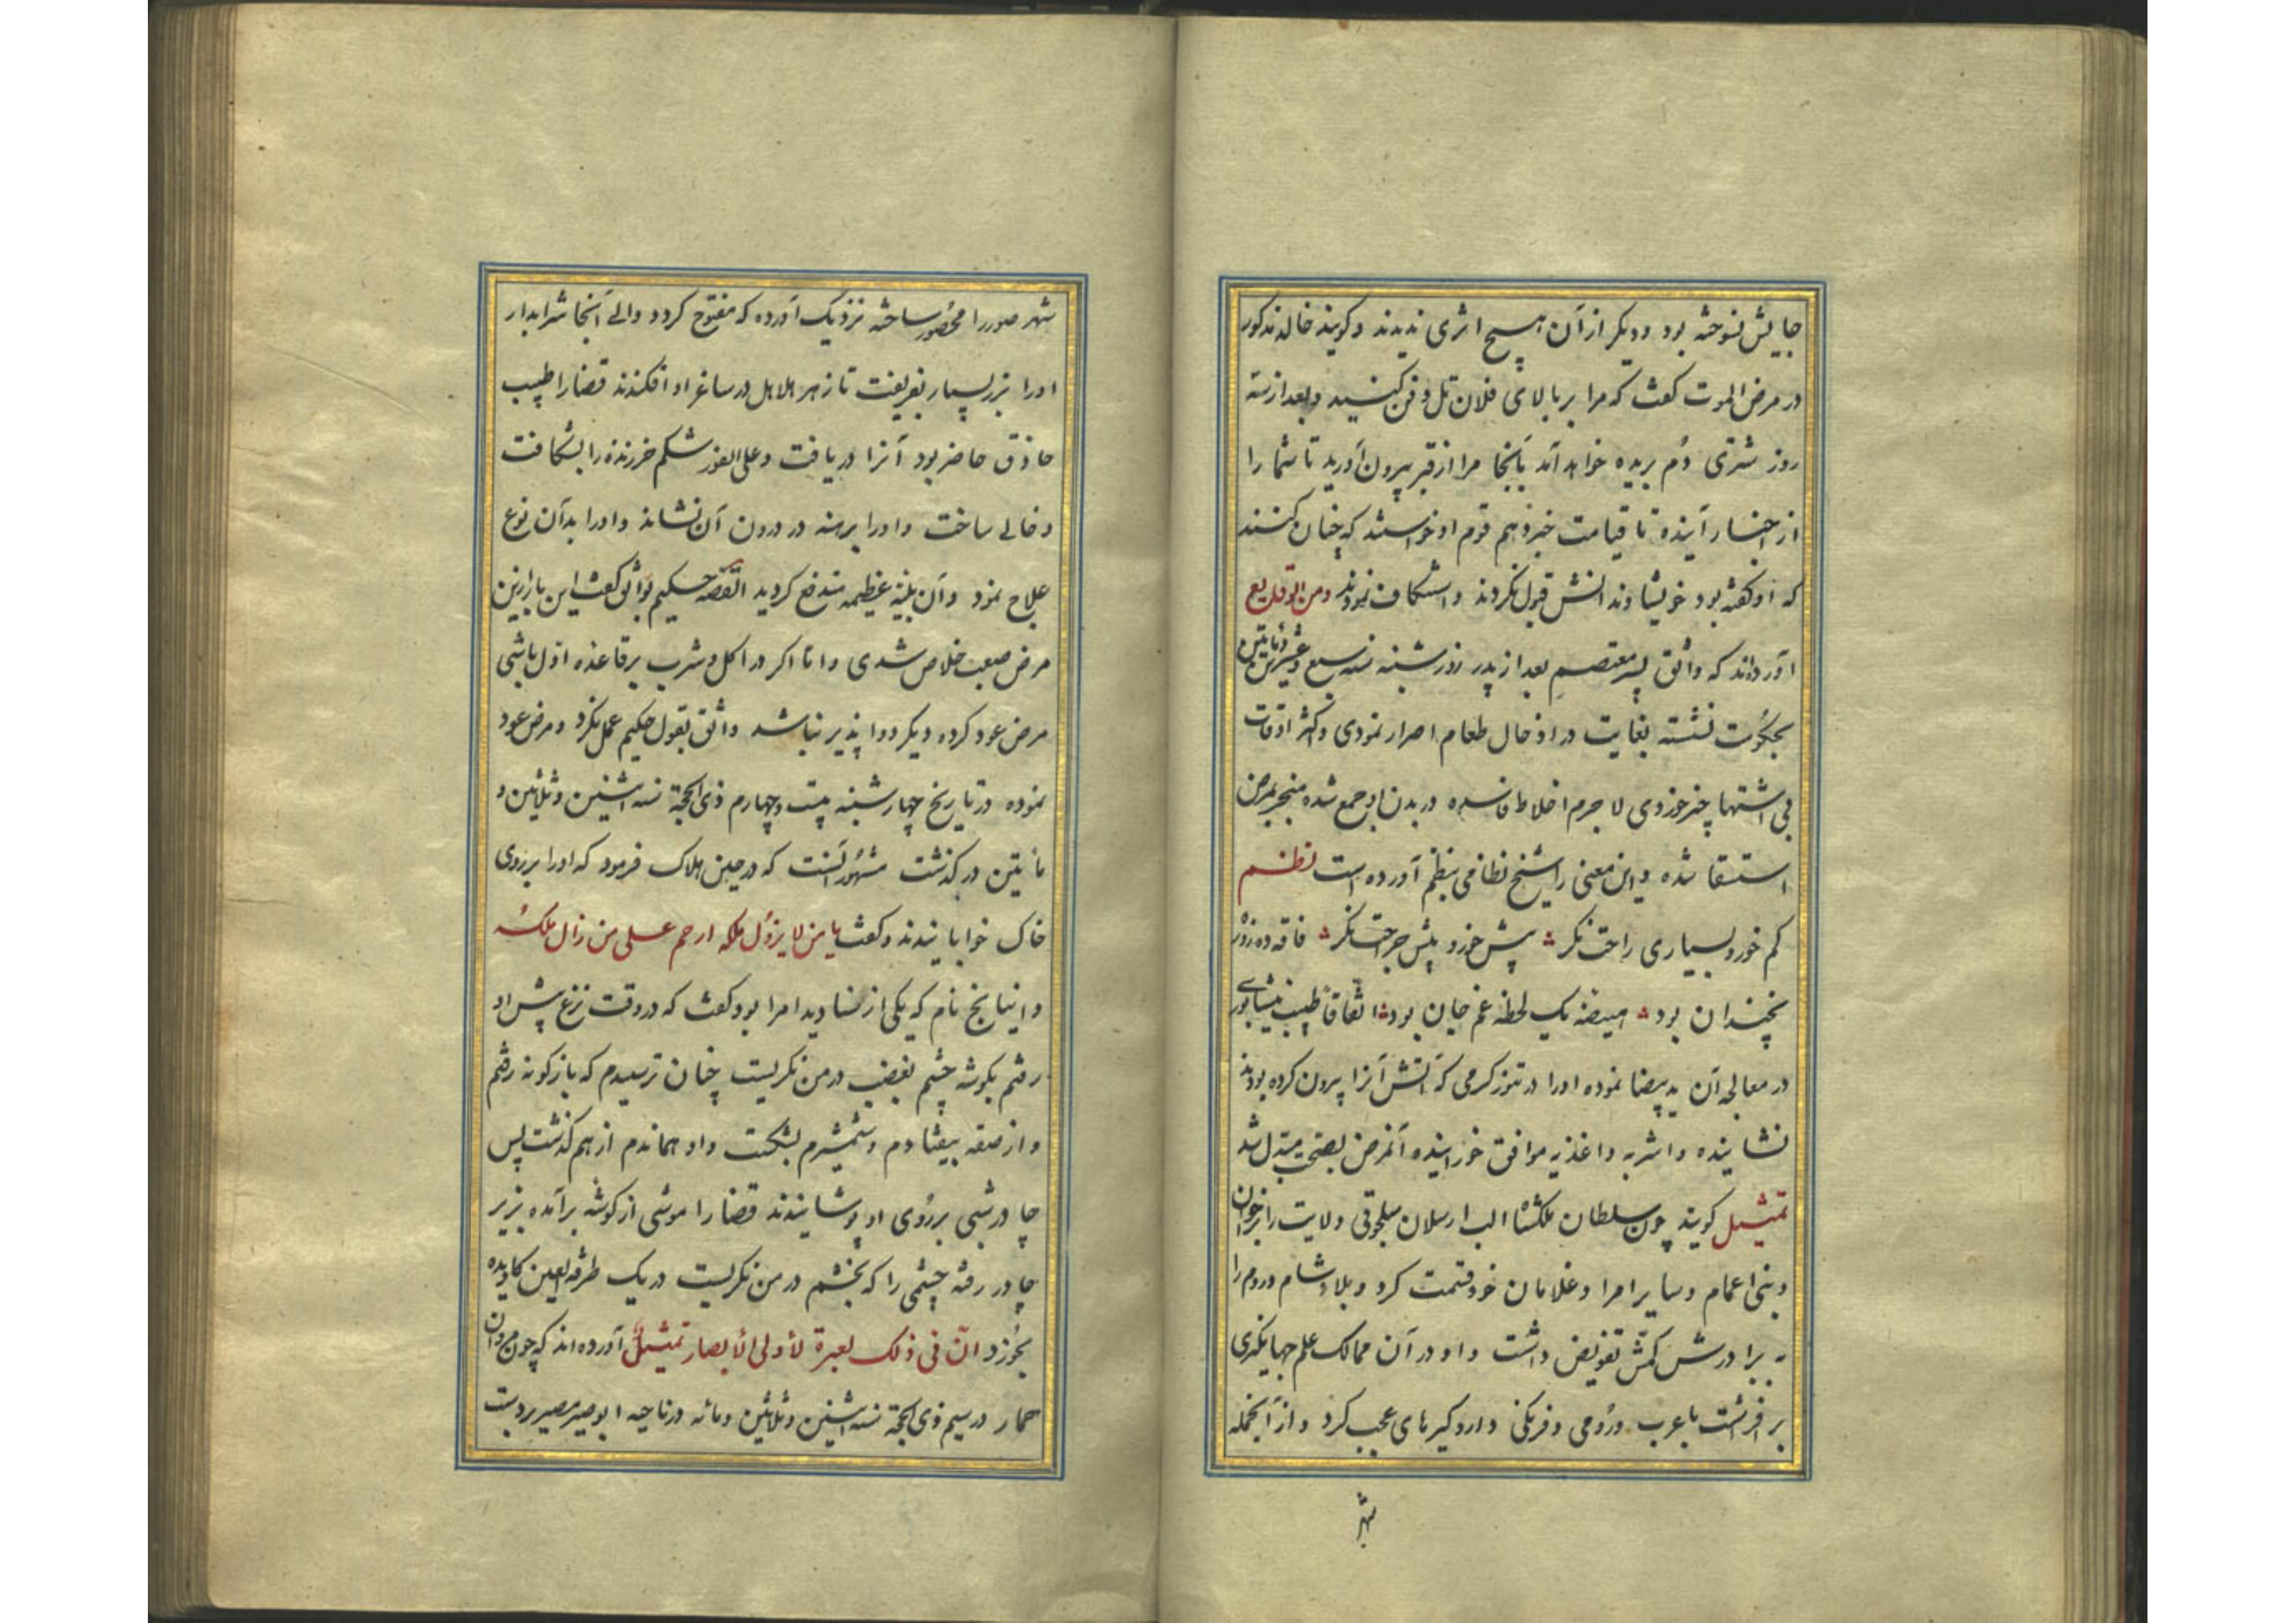 جایش نسوخته بود و دیگر از آن هیچ اثری ندیدند و کویند خاله مذکور
در مرض الموت کفت که مرا بر بالای فلان تل دفن کنید و بعد از سه
روز شتری دُم بریده خواهد آمد بآنجا مرا از قبر بیرون آورید تا شما را
از اخبار آینده تا قیامت خبر دهم قوم او خواستند که چنان کنند
که او کفته بود خویشاوندانش قبول نکردند و استنکاف نمودند ومن الوقایع
آورده‌اند که واثق پسر معتصم بعد از پدر روز شنبه سنه سبع وعشرین ومائتین
بحکومت نشسته بغایت در ادخال طعام اصرار نمودی و اکثر اوقات
بی اشتها چیز خوردی لا جرم اخلاط فاسده در بدن او جمع شده منجر بمرض
استسقا شده و این معنی را شیخ نظامی بنظم آورده است نظم
کم خور و بسیاری راحت نکر پیش خور و بیش جراحت نکر فاقه ده روز
نچندان بود هیضه یک لحظه غم جان بود اتفاقاً طبیب نیشابوری
در معالجه آن ید بیضا نموده او را در تنور کرمی که آتش آنرا بیرون کرده بودند
نشانیده و اشربه و اغذیه موافق خورانیده آنمرض بصحت مبتدل شد
تمثیل کویند چون سلطان ملکشاه الب ارسلان سلجوقی ولایت را بر اخوان
و بنی اعمام و سایر امرا و غلامان خود قسمت کرد و بلاد شام و روم را
به برادرش تتش تفویض داشت و او در آن ممالک علم جهانکیری
بر افراشت با عرب و رُومی و فرنکی دار و کیرهای عجب کرد و از آنجمله
شهر
شهر صور را محصور ساخته نزدیک آورده که مفتوح کردد والی آنجا شرابدار
او را بزر بسیار بفریفت تا زهر هلاهل در ساغر او افکندند قضا را طبیب
حاذق حاضر بود آنرا دریافت و علی الفور شکم خر زنده را بشکافت
و خالی ساخت و او را برهنه در درون آن نشاند و او را بدآن نوع
علاج نمود و آن بلیّه عظیمه مندفع کردید القصه حکیم بواثق کفت این بار از این
مرض صعب خلاص شدی و امّا اکر در اکل و شرب بر قاعده اوّل باشی
مرض عود کرده دیکر دوا پذیر نباشد واثق بقول حکیم عمل نکرد و مرض عود
نموده در تاریخ چهارشنبه بیست وچهارم ذی الحجة سنه اثنین وثلاثین و
مأتین در کذشت مشهُور آنست که در حین هلاک فرمود که او را بر روی
خاک خوابانیدند و کفت یا من لا یزول ملکه ارحم علی من زال ملکُه
و ایتاخ نام که یکی از صنادید امرا بود کفت که در وقت نزع پیش او
رفتم بکوشه چشم بغضب در من نکریست چنان ترسیدم که بازکونه رفتم
و از صفه بیفتادم و شمشیرم بشکست و او هماندم از هم کذشت پس
چادر شبی بر رُوی او پوشانیدند قضا را موشی از کوشه بر آمده بزیر
چادر رفته چشمی را که بخشم در من نکریست در یک طرفة العین کاویده
بخورد انّ فی ذلک لعبرة لأولی الأبصار تمثیل آورده اند که چون مروان
حمار در سیم ذی الحجة سنه اثنین وثلاثین ومائه در ناحیه ابوصیر مصر بر دست